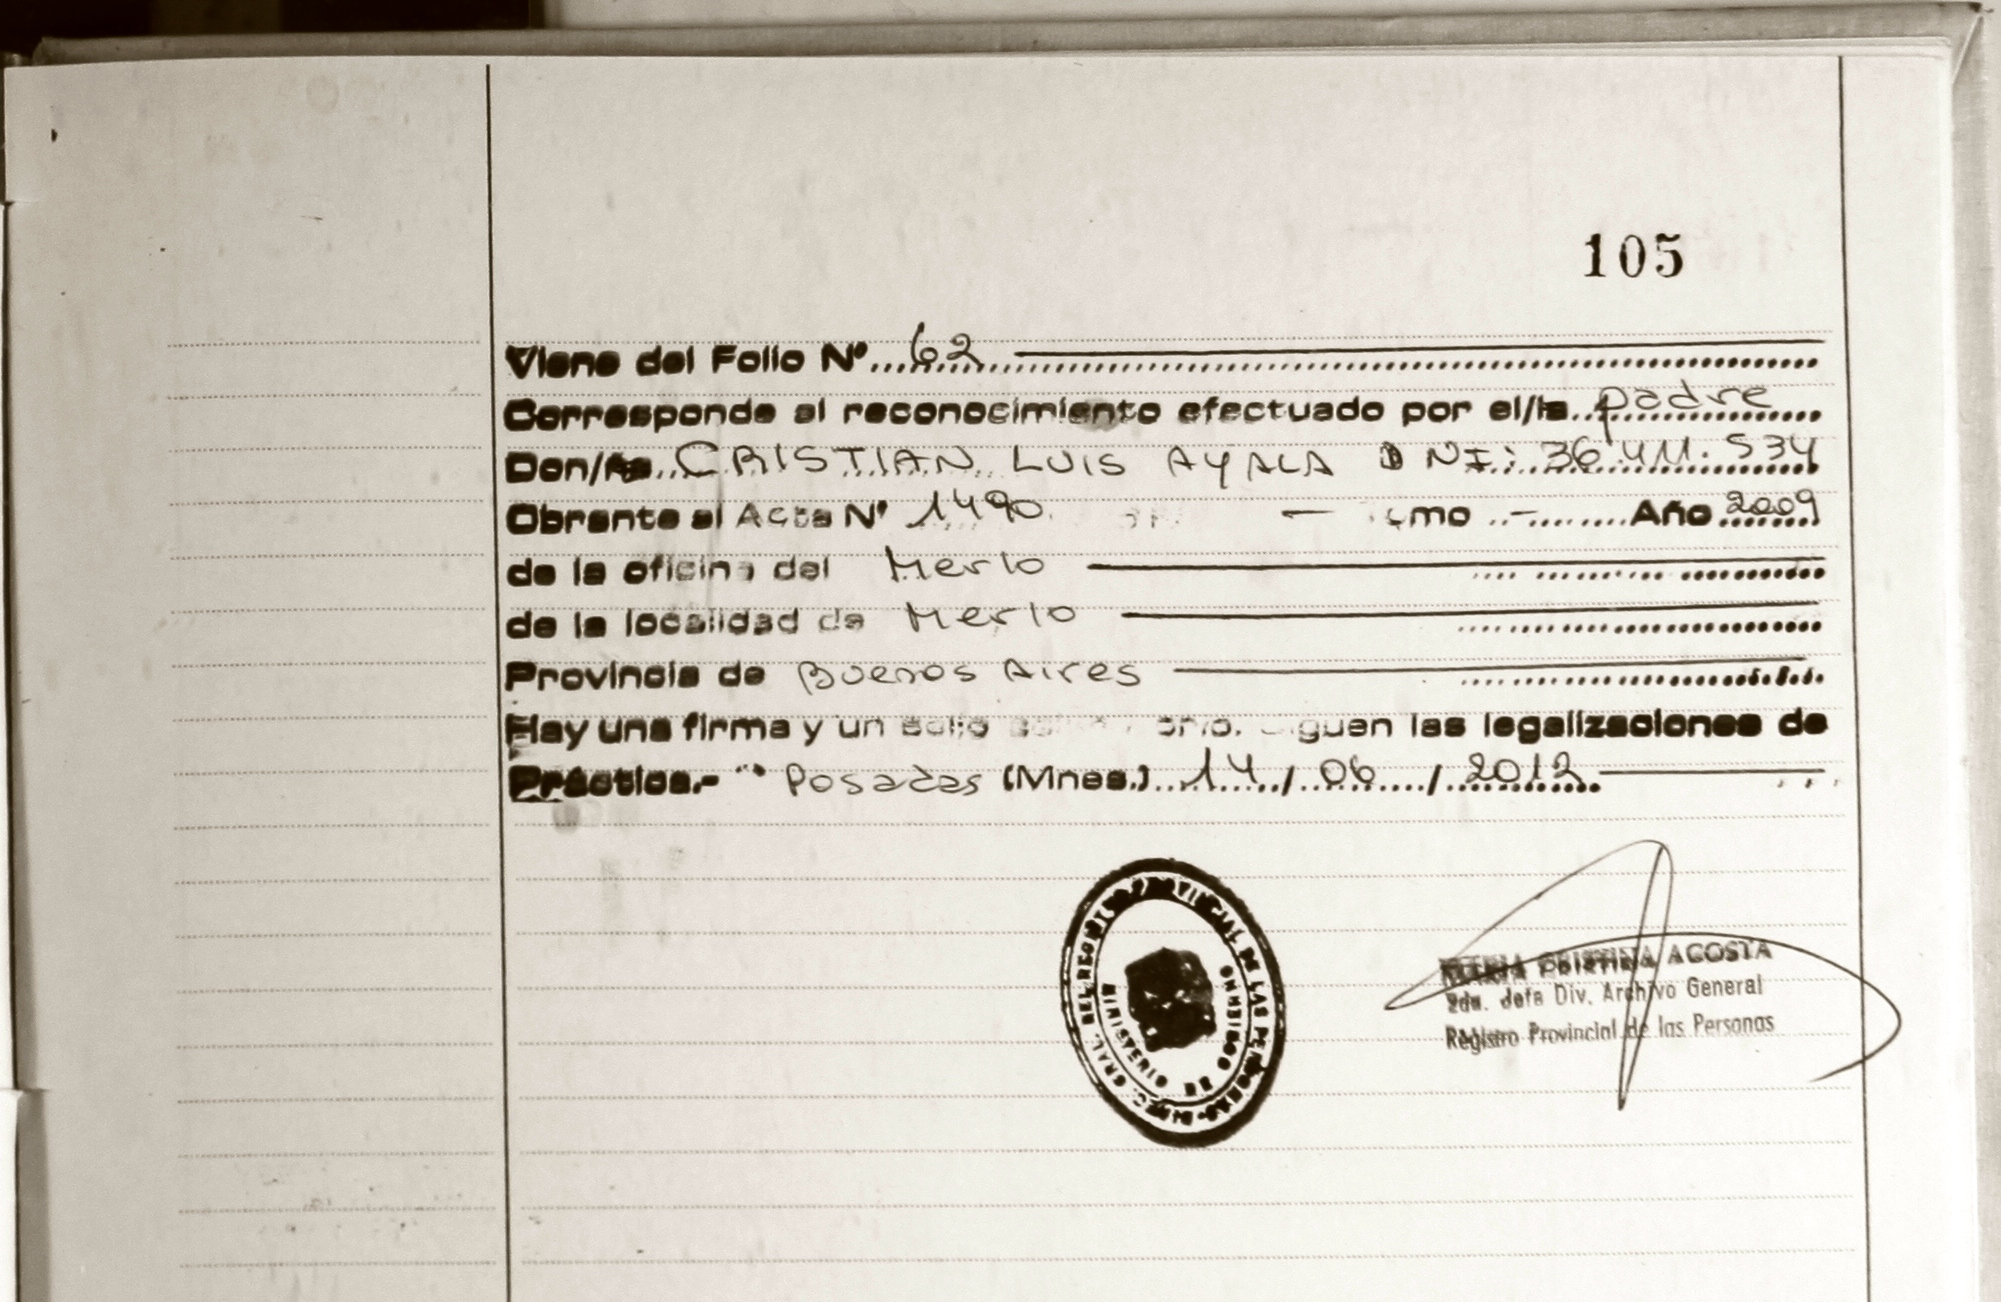 105
Viene del Folio Nº 62
Corresponde al reconocimiento efectuado por el/la padre
Don/ña CRISTIAN LUIS AYALA DNI: 36.411.534
Obrante al Acta Nº 1490 — omo - Año 2009
de la oficina del Merlo
de la localidad de Merlo
Provincia de Buenos Aires
Hay una firma y un sello guen las legalizaciones de
Práctica.- " Posadas (Mnes.) 14 / 06 / 2012
DIREC. GRAL. DEL REGISTRO PROVINCIAL DE LAS PERSONAS
MINISTERIO DE GOBIERNO
MARIA CRISTINA ACOSTA
2da. Jefa Div. Archivo General
Registro Provincial de las Personas